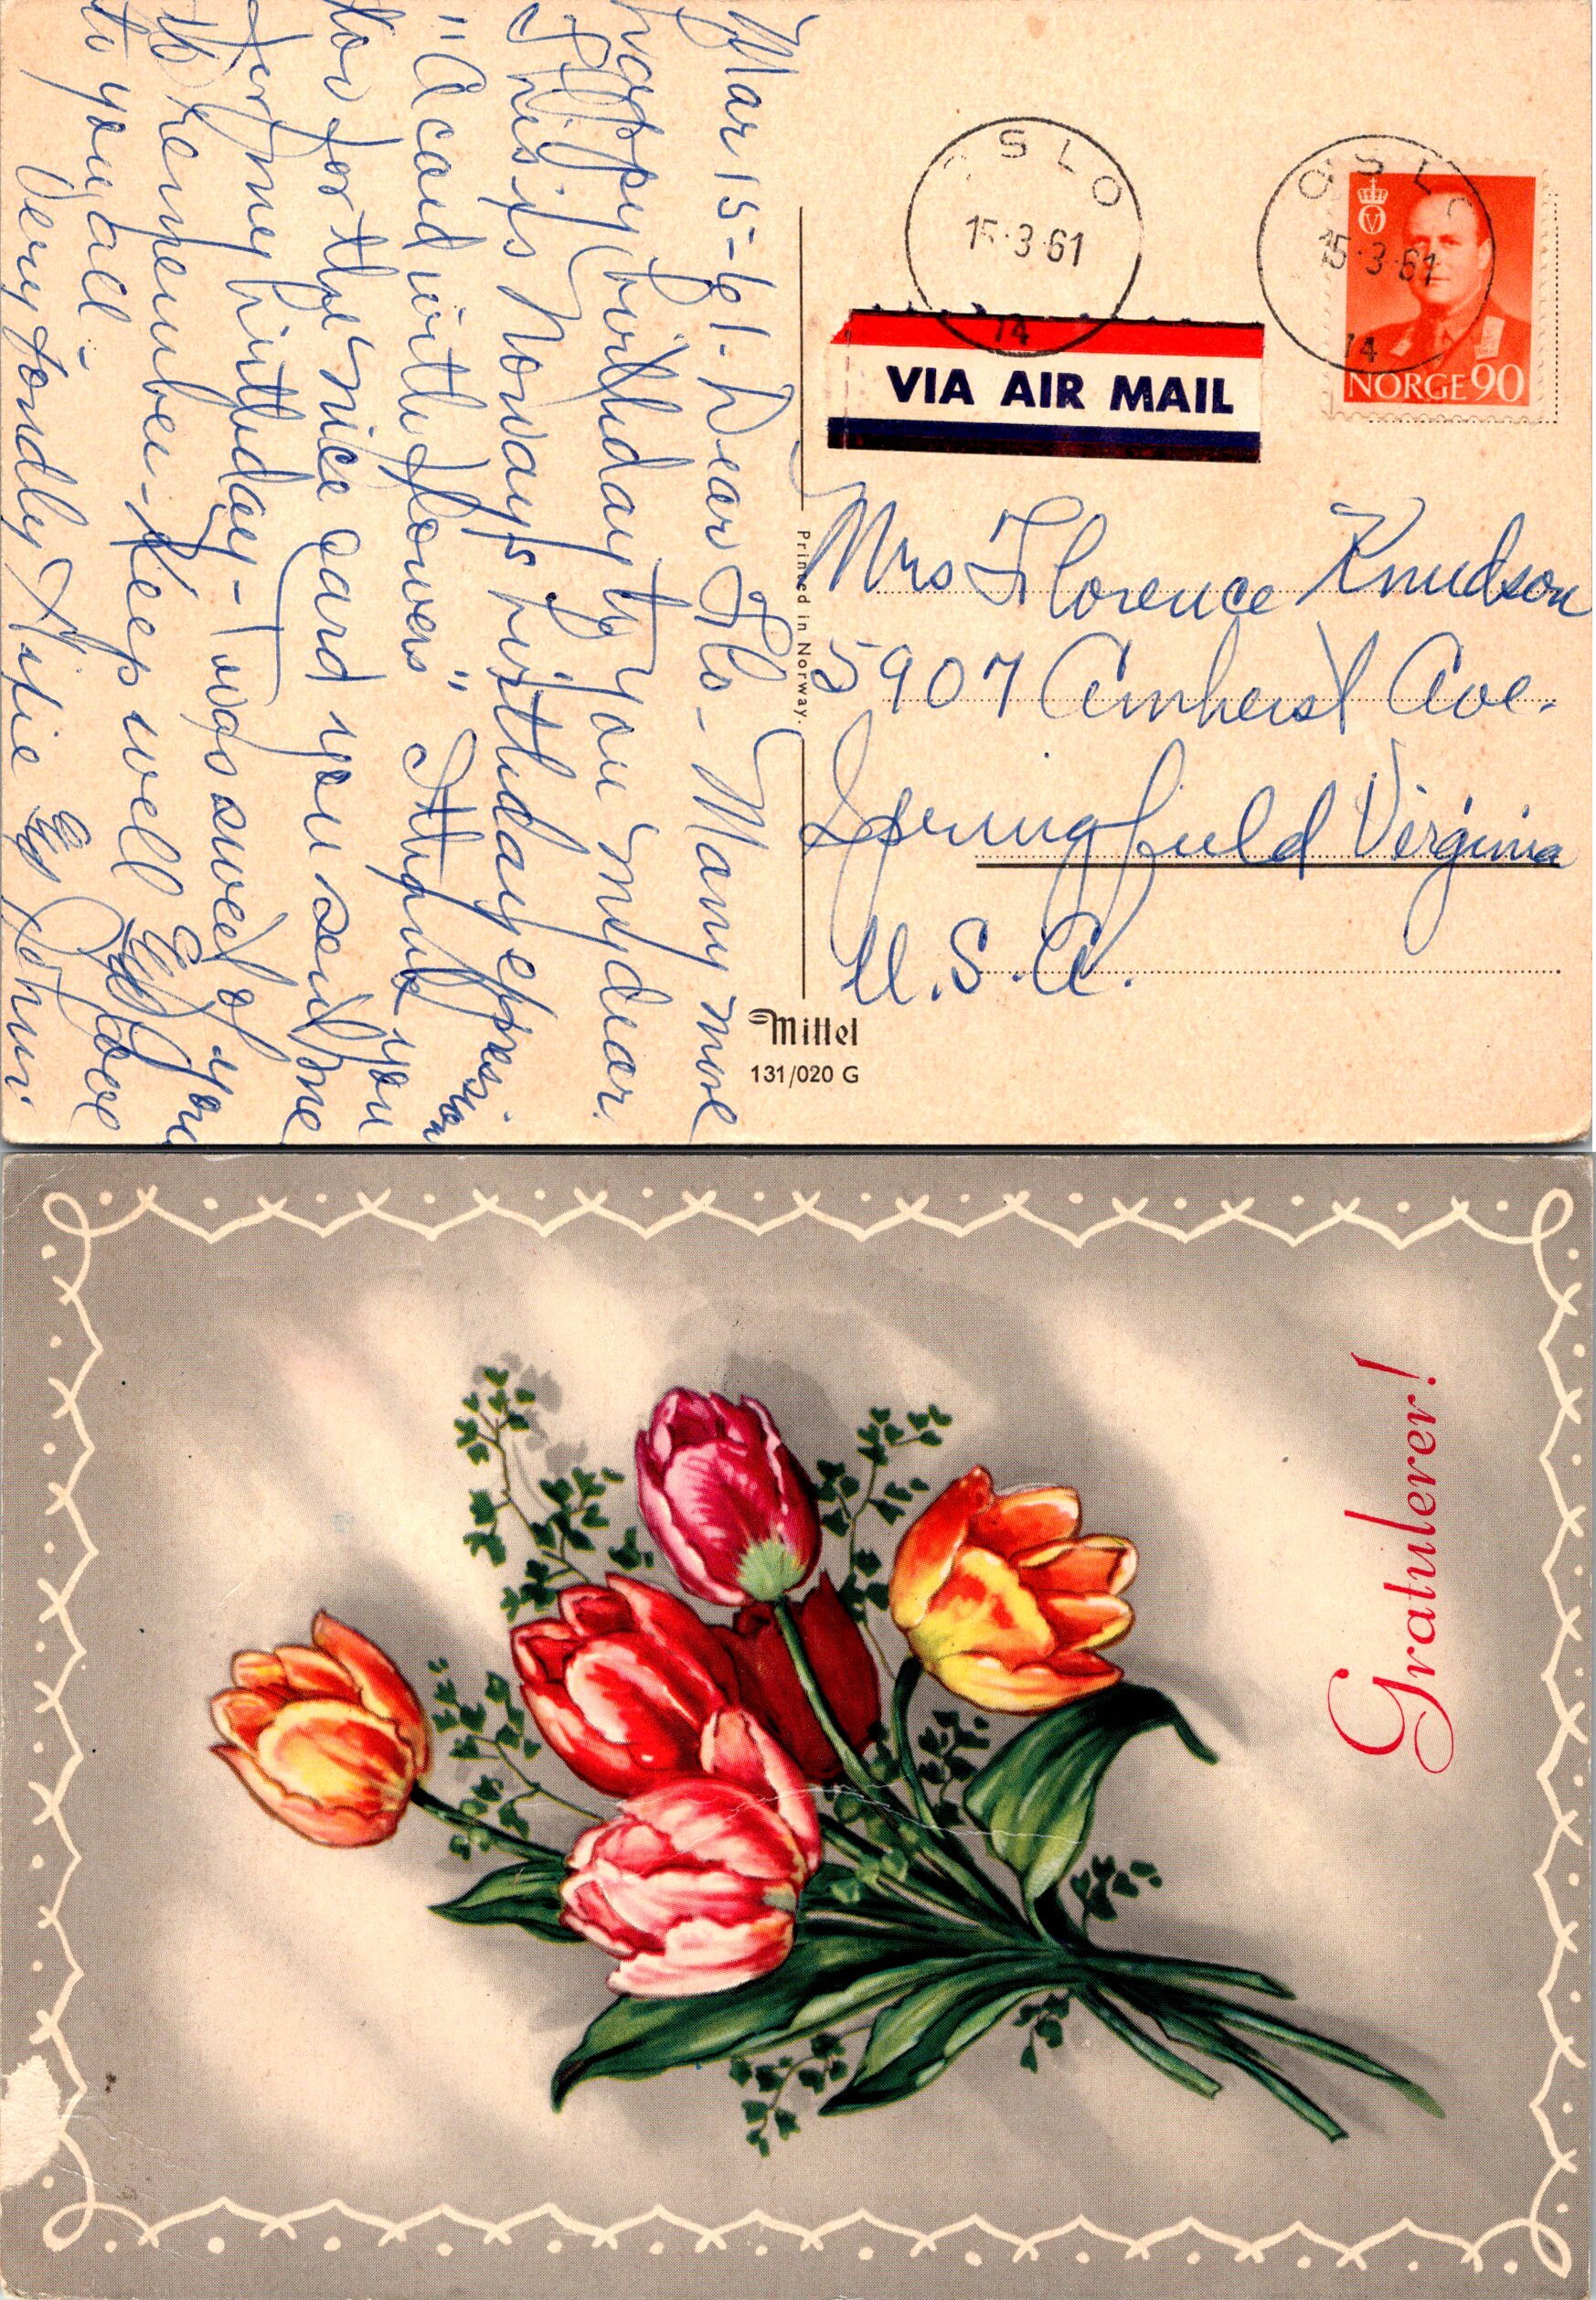 Mar 15-61. Dear Flo - Many more
happy birthday to you my dear.
This is Norways birthday expression
"A card with flowers" Thank you
for the nice card you send me
for my birthday - I was sweet of you
to remember - Keep well God bless
to you all -
Very fondly
OSLO
15·3·61
14
OSLO
15·3·61
14
NORGE 90
VIA AIR MAIL
Mrs Florence Knudson
5907 Amherst Ave.
Springfield Virginia
U.S.A.
Printed in Norway.
Mittel
131/020 G
Gratulerer!